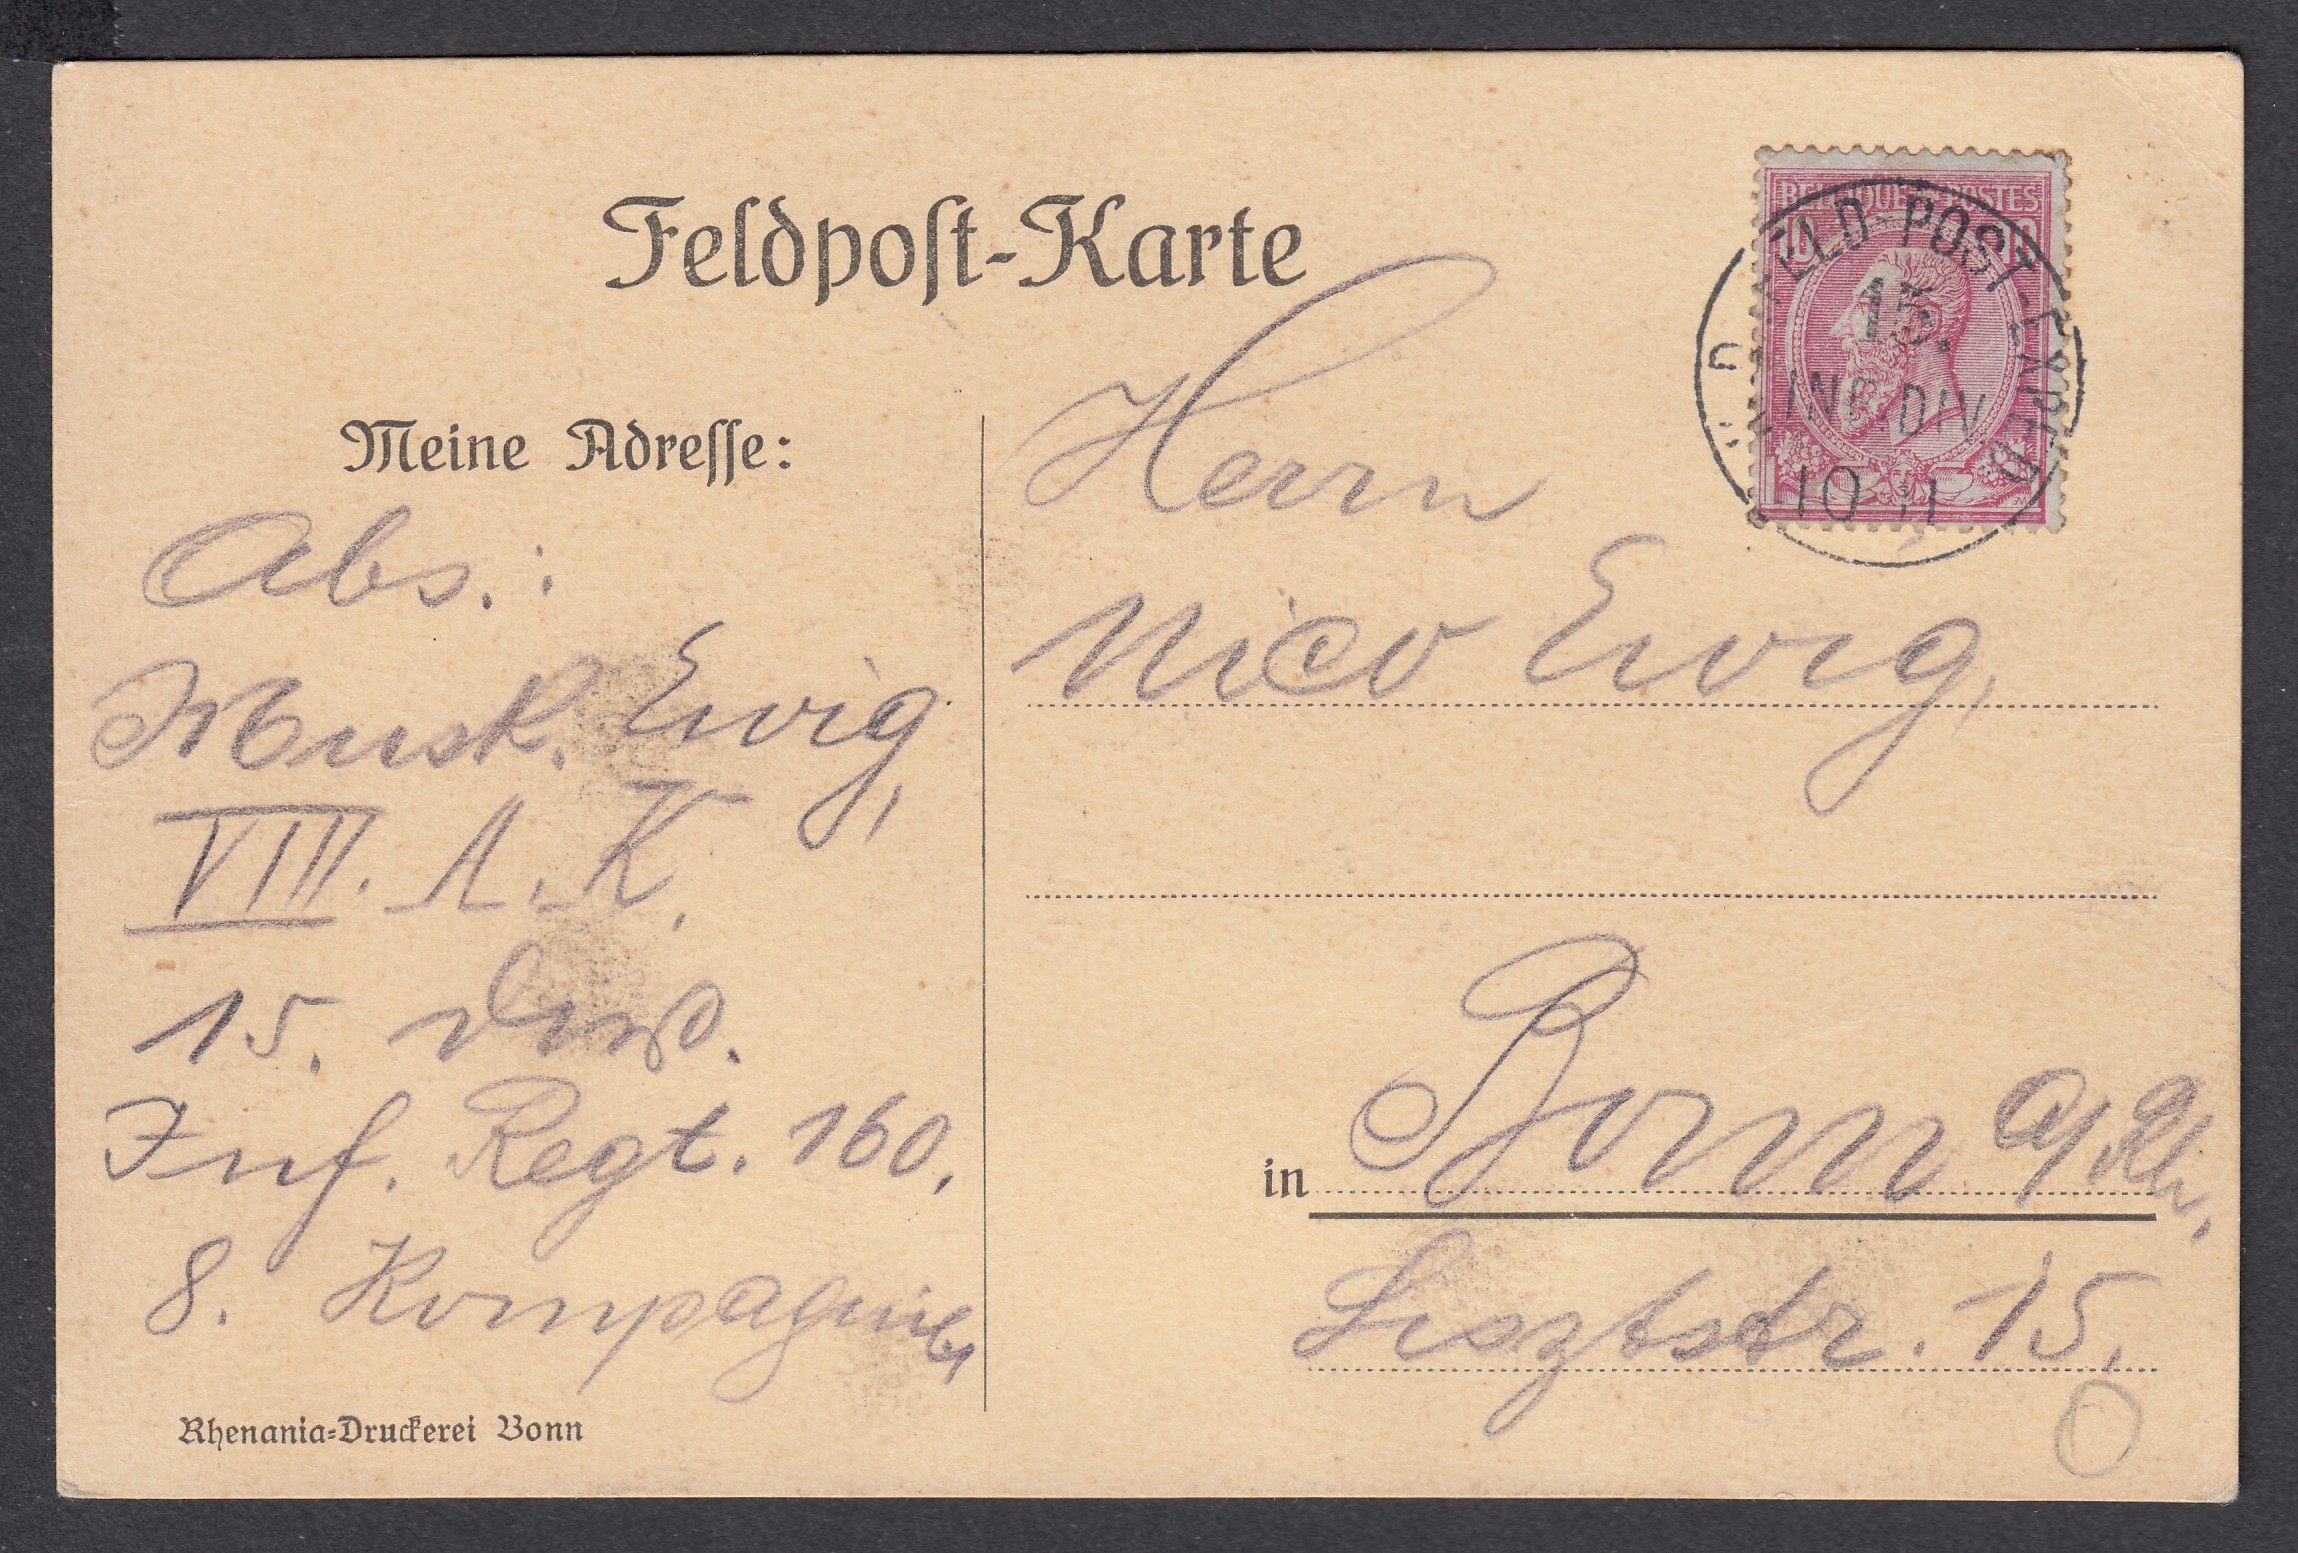 Feldpost-Karte
BELGIQUE POSTES
FELD-POST-EXPED
15.
INF. DIV.
10 11
Meine Adresse:
Abs.:
Musk. Ewig,
VIII. A.K.
15. Div.
Inf. Regt. 160,
8. Kompagnie,
Rhenania-Druckerei Bonn
Herrn
Nico Ewig,
in Bonn a/Rh.
Lisztstr. 15.